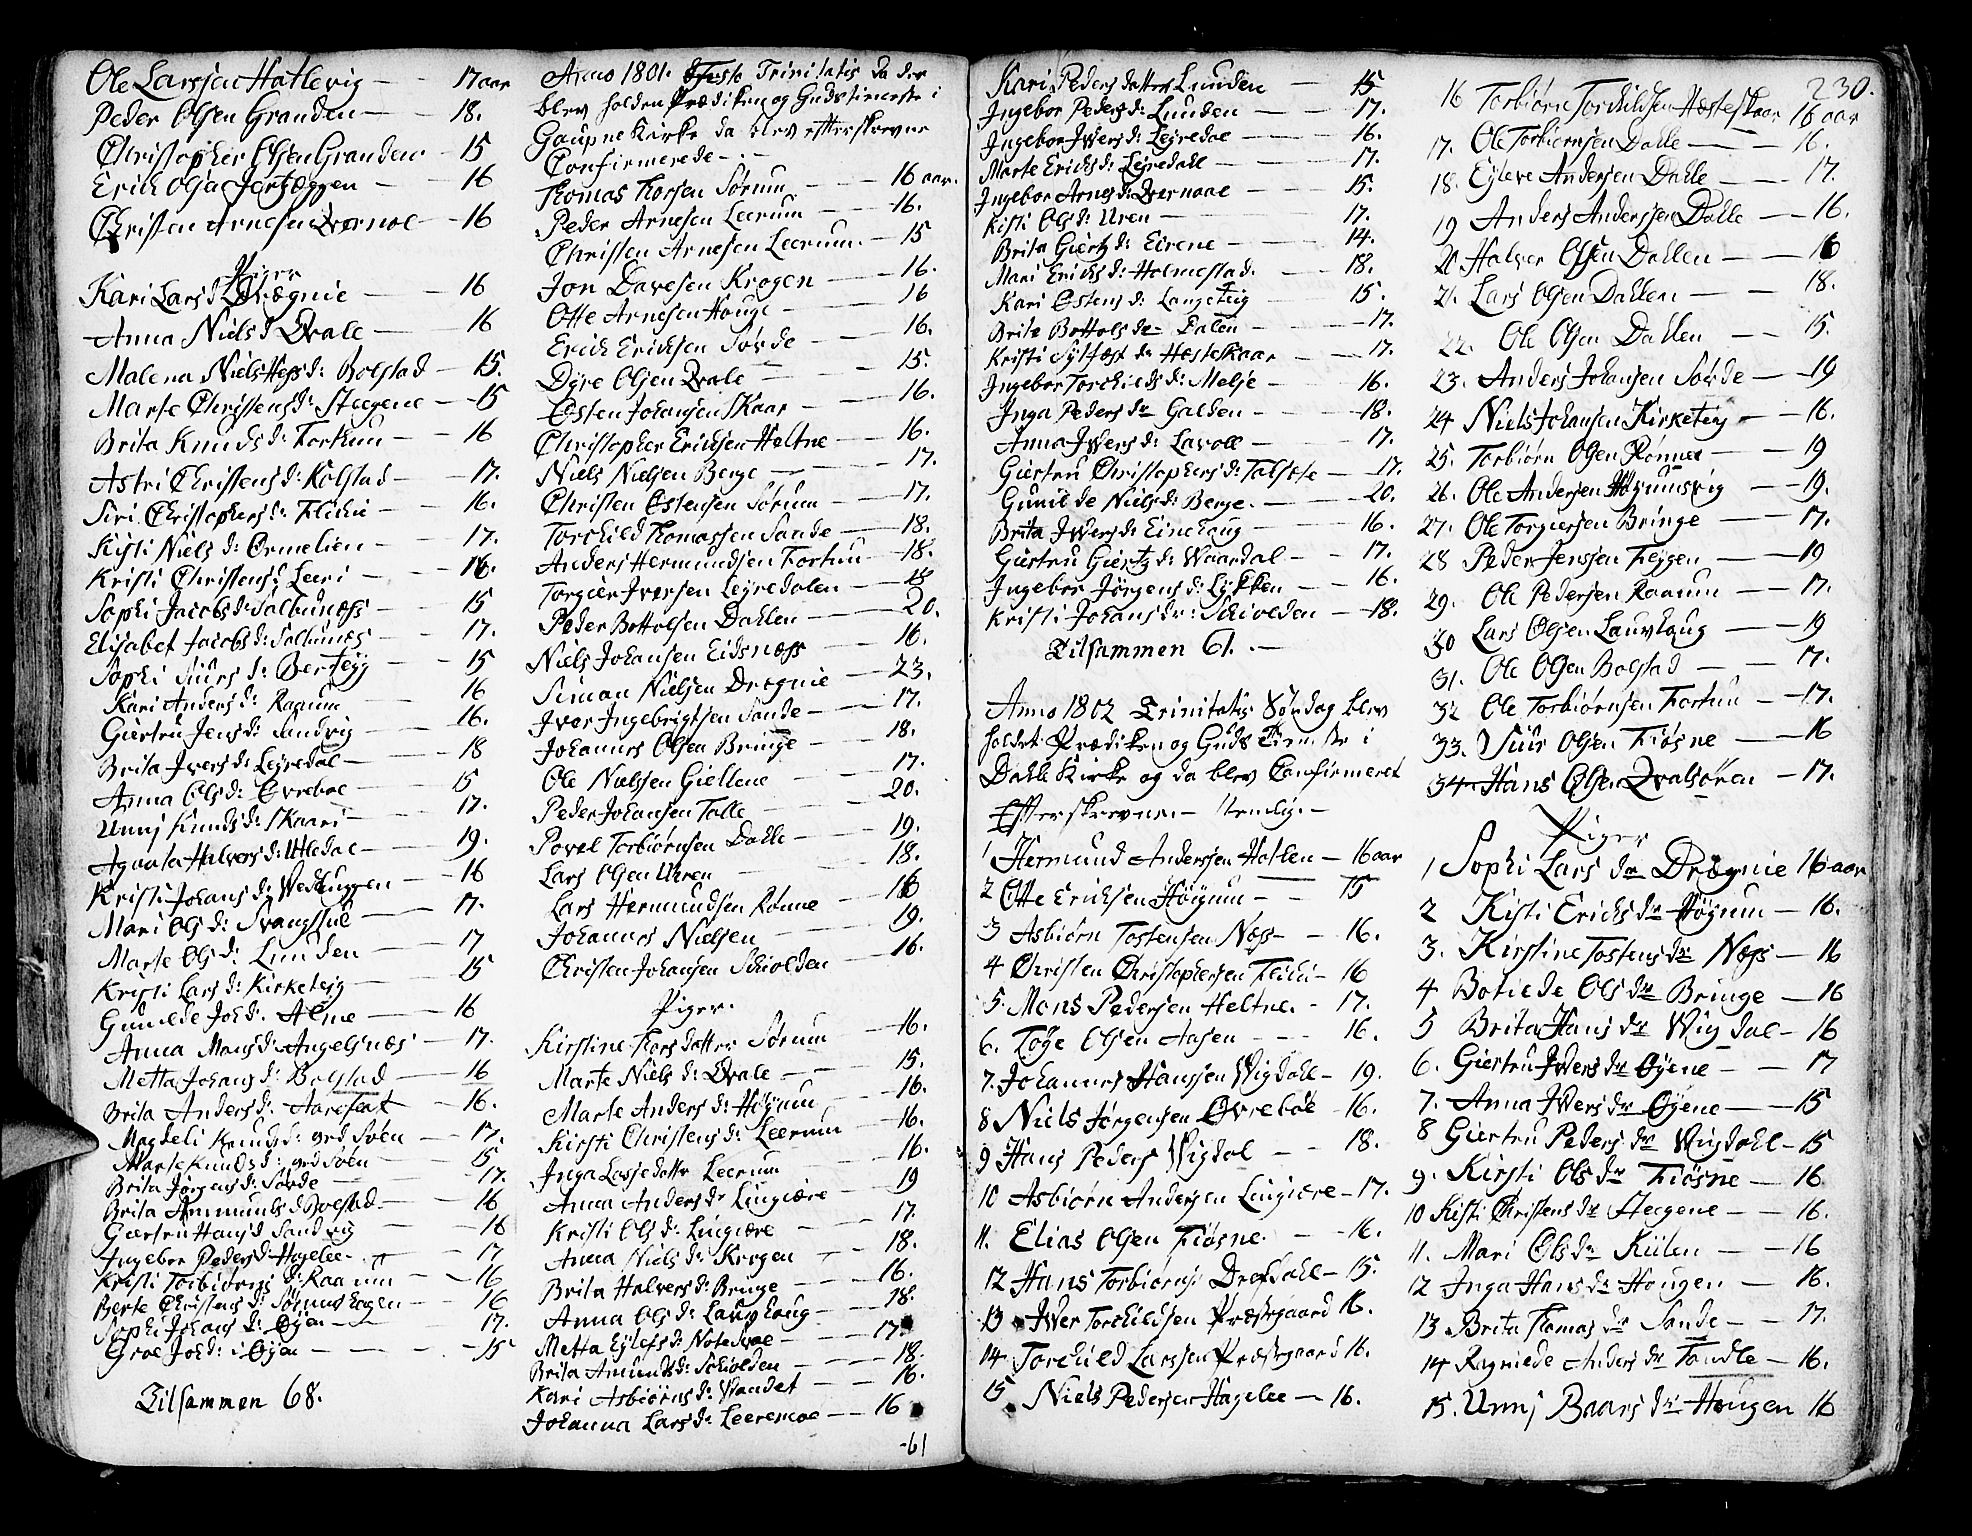 Ole Larssen Hatlevig — 17 aar
Peder Olsen Granden — 18.
Christopher Olsen Granden 15
Erich Olsen — 16
Christen Arnesen Qvernoe — 16
Piger
Kari Lars d: Drægnie — 16
Anna Niels d: Qvale — 16
Malena Niels d: Bolstad — 15.
Marte Christens d: Steegene — 15
Brita Knuds d: Fortuun — 16
Astri Christens d: Kolstad — 17.
Siri Christophers d: Flichi — 16.
Kisti Niels d: Ormelien — 17.
Kristi Christens d: Leeri — 16.
Sophi Jacobs d: Salhunæss — 15
Elisabet Jacobs d: Salhunæs — 17.
Sophi Siurs d: — 15
Kari Anders d: Raaum — 16
Giertru Jens d: Sandvig — 16.
Brita Ivers d: Leyredal — 18
Anna Ols d: Øvreboe — 15
Unni Knuds d: Skaari — 17.
Agaata Halvers d: Utledal — 19.
Kristi Johans d: — 16
Mari Ols d: — 17.
Marte Ols d: Lunden — 17
Kristi Lars d: Kirketeig — 15
Gunilde Joh d: Alme — 16
Anna Mons d: Angelsnæs — 17.
Metta Johans d: Bolstad — 16
Brita Anders d: — 16.
Magdeli Knuds d: — 17.
Marte Knuds d: — 15
Brita Jørgens d: Sørde — 17.
Brita Ammunds d: Bolstad — 16
Giertru Hans d: Sandvig — 16
Ingebor Peders d: Hagelee — 17
Kristi Torbiørns d: Raaum — 16
Berte Christens d: — 16
Sophi Johans d: Øyen — 17.
Groe Joh d: Øyen — 15
Tilsammen 68.
Anno 1801. Festo Trinitatis da der
blev holden Prædiken og Gudstieneste i
Gaupne Kirke da blev efterskrevne
Confirmerede —
Thomas Thorsen Sørum — 16 aar.
Peder Arnesen Leerum — 16.
Christen Arnesen Leerum — 15
Jon Davesen Krogen — 16.
Otte Arnesen Houge — 16
Erich Erichsen Sørde — 16.
Dyre Olsen Qvale — 15.
Østen Johansen Skaar — 16.
Christopher Erichsen Heltne — 16.
Niels Nielsen Berge — 17.
Christen Østensen Sørum — 17.
Torchild Thomassen Sande — 18.
Anders Hermundsen Fortun — 18.
Torgier Iversen Leyredalen — 18
Peder Bottolsen Dahlen — 20.
Niels Johansen Eidsnæss — 16.
Simon Nielsen Drægnie — 23.
Iver Ingebrigtsen Sande — 17.
Johannes Olsen Bringe — 18.
Ole Nielsen Giellene — 17.
Peder Johansen Talle — 20.
Povel Torbiørnsen Dahle — 19.
Lars Olsen Uren — 18.
Lars Hermundsen Rønne — 16
Johannes Nielsen — 19.
Christen Johansen Schiolden — 16.
Piger.
Kirstine Thorsdatter Sørum — 16.
Marte Niels d: Qvale — 15.
Marte Anders d: Høyum — 16.
Kirsti Christens d: Leerum — 16.
Inga Lassedattr Leerum — 16.
Anna Anders dr Lingiære — 19
Kristi Ols d: Lingiære — 17
Anna Niels d: Krogen — 18.
Brita Halvers d: Bringe — 16.
Anna Ols d: Lauvhoug — 18.
Metta Eylefs d: — 17
Brita Amunds d: Schiolden — 18.
Kari Asbiørns d: — 16.
Johanna Lars d: Leeremoe — 16
61
Kari Pedersdatter Lunden — 15
Ingebor Peders d: Lunden — 17.
Ingebor Ivers d: Leyredal — 16.
Marte Erichs d: Leyredahl — 17.
Ingebor Arnes d: Qvernoae — 15.
Kisti Ols d: Uren — 17.
Brita Giertz d: Eirene — 14.
Mari Erichs d: Holmestad — 18.
Kari Østens d: Langeteig — 15.
Brite Bottols dr Dalen — 17.
Kristi dr Hesteskaar — 17.
Ingebor Torchilds d: Melse — 16.
Inga Peders dr Galden — 18.
Anna Ivers d: Lavoll — 17.
Giertru Christophers d: — 17.
Gunilde Niels d: Berge. — 20.
Brita Ivers d: Einehoug — 16.
Giertru Giertz d: Waardal — 17.
Ingebor Jørgens d: Lykken — 16.
Kristi Johans dr: Schiolden — 18.
Tilsammen 61. —
Anno 1802 Trinitatis Søndag blev
holdet Prædiken og Guds Tieneste i
Dahle Kirke og da blev Confirmeret
Efterskrevne. — Nemlig. —
1 Hermund Andersen Hatlen — 16 aar
2 Otte Erichsen Høyum — 15
3 Asbiørn Tostensen Næss — 16.
4 Christen Christophersen Flichi — 16
5. Mons Pedersen Heltne. — 17.
6. Tøge Olsen Aasen — 16.
7. Johannes Hanssen Wigdahl — 19.
8 Niels Jørgensen Øvreboe — 16.
9 Hans Peders Wigdal — 18.
10 Asbiørn Andersen Lingiære — 17.
11. Elias Olsen Fiøsne. — 16.
12 Hans Torbiørns Dregdahl — 15.
13 Iver Torchildsen Præstgaard 16.
14 Torchild Larssen Præstgaard 16.
15 Niels Pedersen Hagelee — 16.
230.
16 Torbiørn Torchildsen Hæsteskaar 16 aar
17. Ole Torbiørnsen Dahle — 16.
18. Eyleve Andersen Dahle — 17.
19 Anders Anderssen Dahle — 16.
20 Halver Olsen Dahlen — 16
21. Lars Olsen Dahlen — 18.
22. Ole Olsen Dahlen — 15.
23. Anders Johansen Sørde — 19
24 Niels Johansen Kirketeig — 16.
25. Torbiørn Olsen Rønnei — 19
26. Ole Andersen — 19.
27. Ole Torgiersen Bringe — 17.
28 Peder Jenssen Feygen — 19
29. Ole Pedersen Raaum — 17.
30 Lars Olsen Lauvhoug — 19
31. Ole Olsen Bolstad — 17.
32 Ole Torbiørnsen Fortun — 17.
33. Siur Olsen Fiøsne — 16
34 Hans Olsen Qvalsøren — 17.
Piger
1 Sophi Lars dr Drægnie 16 aar
2 Kisti Erichs dr Høyum — 16.
3. Kirstine Tostens dr Næss — 16
4 Botilde Ols dr Bringe — 16
5 Brita Hans dr Wigdal — 16
6. Giertru Ivers dr Øyene — 17
7. Anna Ivers dr Øyene — 15
8 Giertru Peders dr Wigdahl — 15
9. Kirsti Ols dr Fiøsne — 16
10 Kisti Christens dr Steegene — 16.
11. Mari Ols dr Kiilen — 16
12 Inga Hans dr Hougen — 16.
13 Brita Thomas dr Sande — 17.
14 Ragnilde Anders dr Tandle — 16.
15. Unni Baars dr Hougen 16